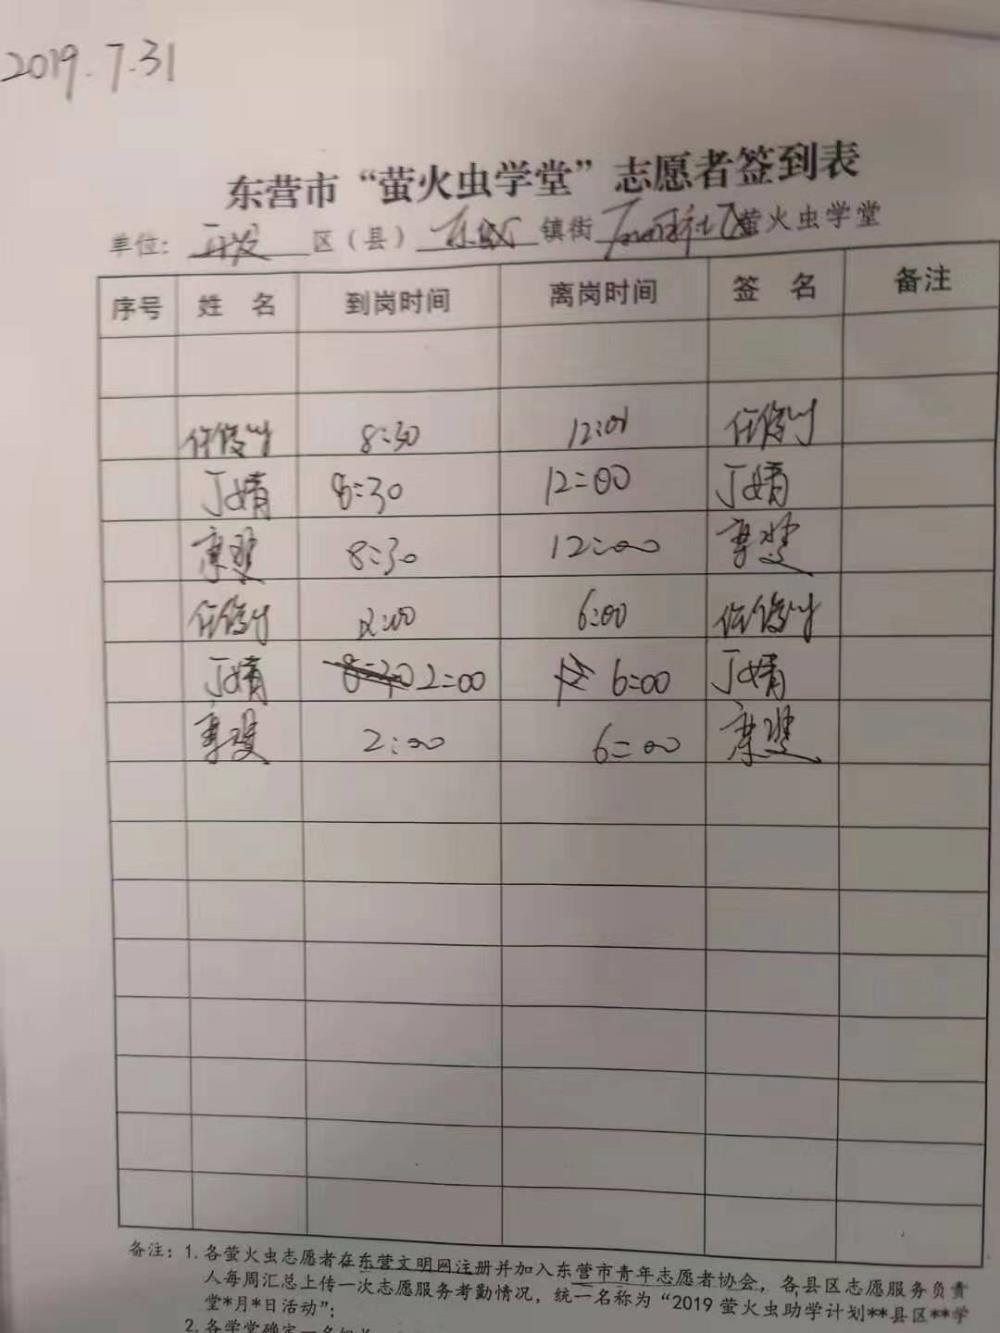 2019.7.31
东营市“萤火虫学堂”志愿者签到表
单位: 开发 区(县) 东城 镇街 社区萤火虫学堂
序号 姓 名 到岗时间 离岗时间 签 名 备注
任俊 8:30 12:00 任俊
丁婧 8:30 12:00 丁婧
8:30 12:00
任俊 2:00 6:00 任俊
丁婧 8:30 2:00 12 6:00 丁婧
2:00 6:00
备注: 1.各萤火虫志愿者在东营文明网注册并加入东营市青年志愿者协会,各县区志愿服务负责
人每周汇总上传一次志愿服务考勤情况,统一名称为“2019萤火虫助学计划**县区**学
堂*月*日活动”;
2.各学堂确定一名